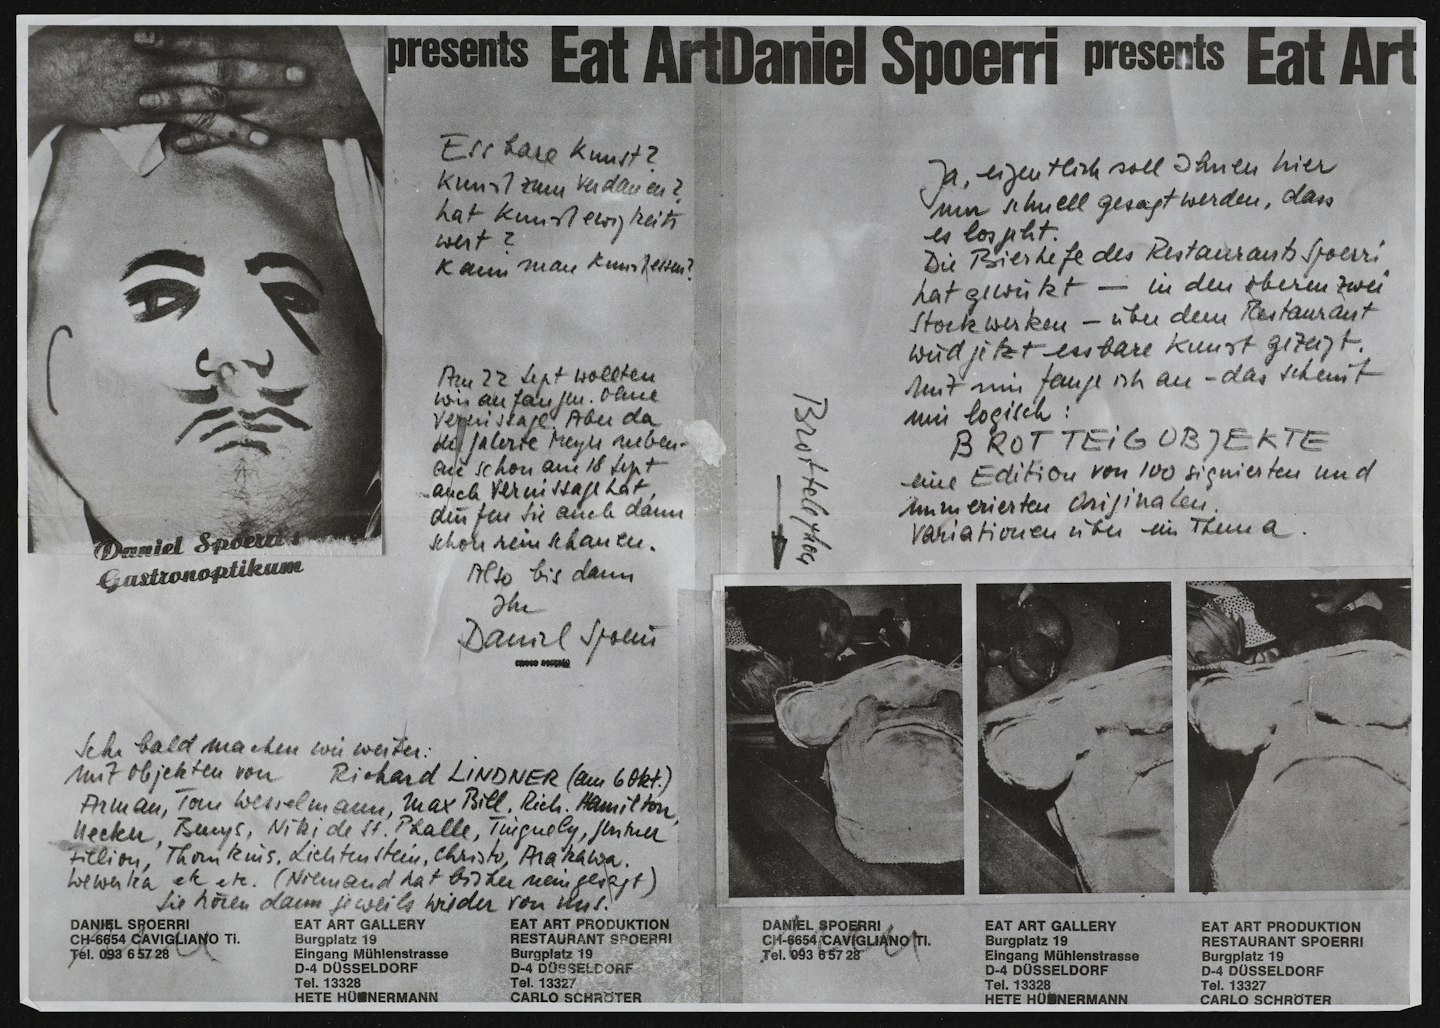 presents Eat Art Daniel Spoerri presents Eat Art
Essbare Kunst?
Kunst zum Verdauen?
hat Kunst ewigkeits
wert?
Kann man Kunst essen?
Am 22 Sept wollten
wir anfangen. Ohne
Vernissage. Aber da
die Galerie Meyer neben-
an schon am 18 Sept
auch Vernissage hat,
dürfen Sie auch dann
schon reinschauen.
Also bis dann
Ihr
Daniel Spoerri
Daniel Spoerri's
Gastronoptikum
Sehr bald machen wir weiter:
mit Objekten von Richard LINDNER (am 6 Okt.)
Arman, Tom Wesselmann, Max Bill, Rich. Hamilton,
Uecker, Beuys, Niki de St. Phalle, Tinguely, Gerstner
Fillion, Thomkins, Lichtenstein, Christo, Arakawa.
Wewerka etc etc. (Niemand hat bisher nein gesagt)
Sie hören dann jeweils wieder von uns.
Ja, eigentlich soll Ihnen hier
nur schnell gesagt werden, dass
es losgeht.
Die Bierhefe des Restaurants Spoerri
hat gewirkt — in den oberen zwei
Stockwerken — über dem Restaurant
wird jetzt essbare Kunst gezeigt.
Mit mir fange ich an – das scheint
mir logisch:
BROTTEIGOBJEKTE
eine Edition von 100 signierten und
numerierten Originalen.
Variationen über ein Thema.
Brottelephon
DANIEL SPOERRI
CH-6654 CAVIGLIANO Ti.
Tel. 093 6 57 28
EAT ART GALLERY
Burgplatz 19
Eingang Mühlenstrasse
D-4 DÜSSELDORF
Tel. 13328
HETE HÜNERMANN
EAT ART PRODUKTION
RESTAURANT SPOERRI
Burgplatz 19
D-4 DÜSSELDORF
Tel. 13327
CARLO SCHRÖTER
DANIEL SPOERRI
CH-6654 CAVIGLIANO Ti.
Tel. 093 6 57 28
EAT ART GALLERY
Burgplatz 19
Eingang Mühlenstrasse
D-4 DÜSSELDORF
Tel. 13328
HETE HÜNERMANN
EAT ART PRODUKTION
RESTAURANT SPOERRI
Burgplatz 19
D-4 DÜSSELDORF
Tel. 13327
CARLO SCHRÖTER